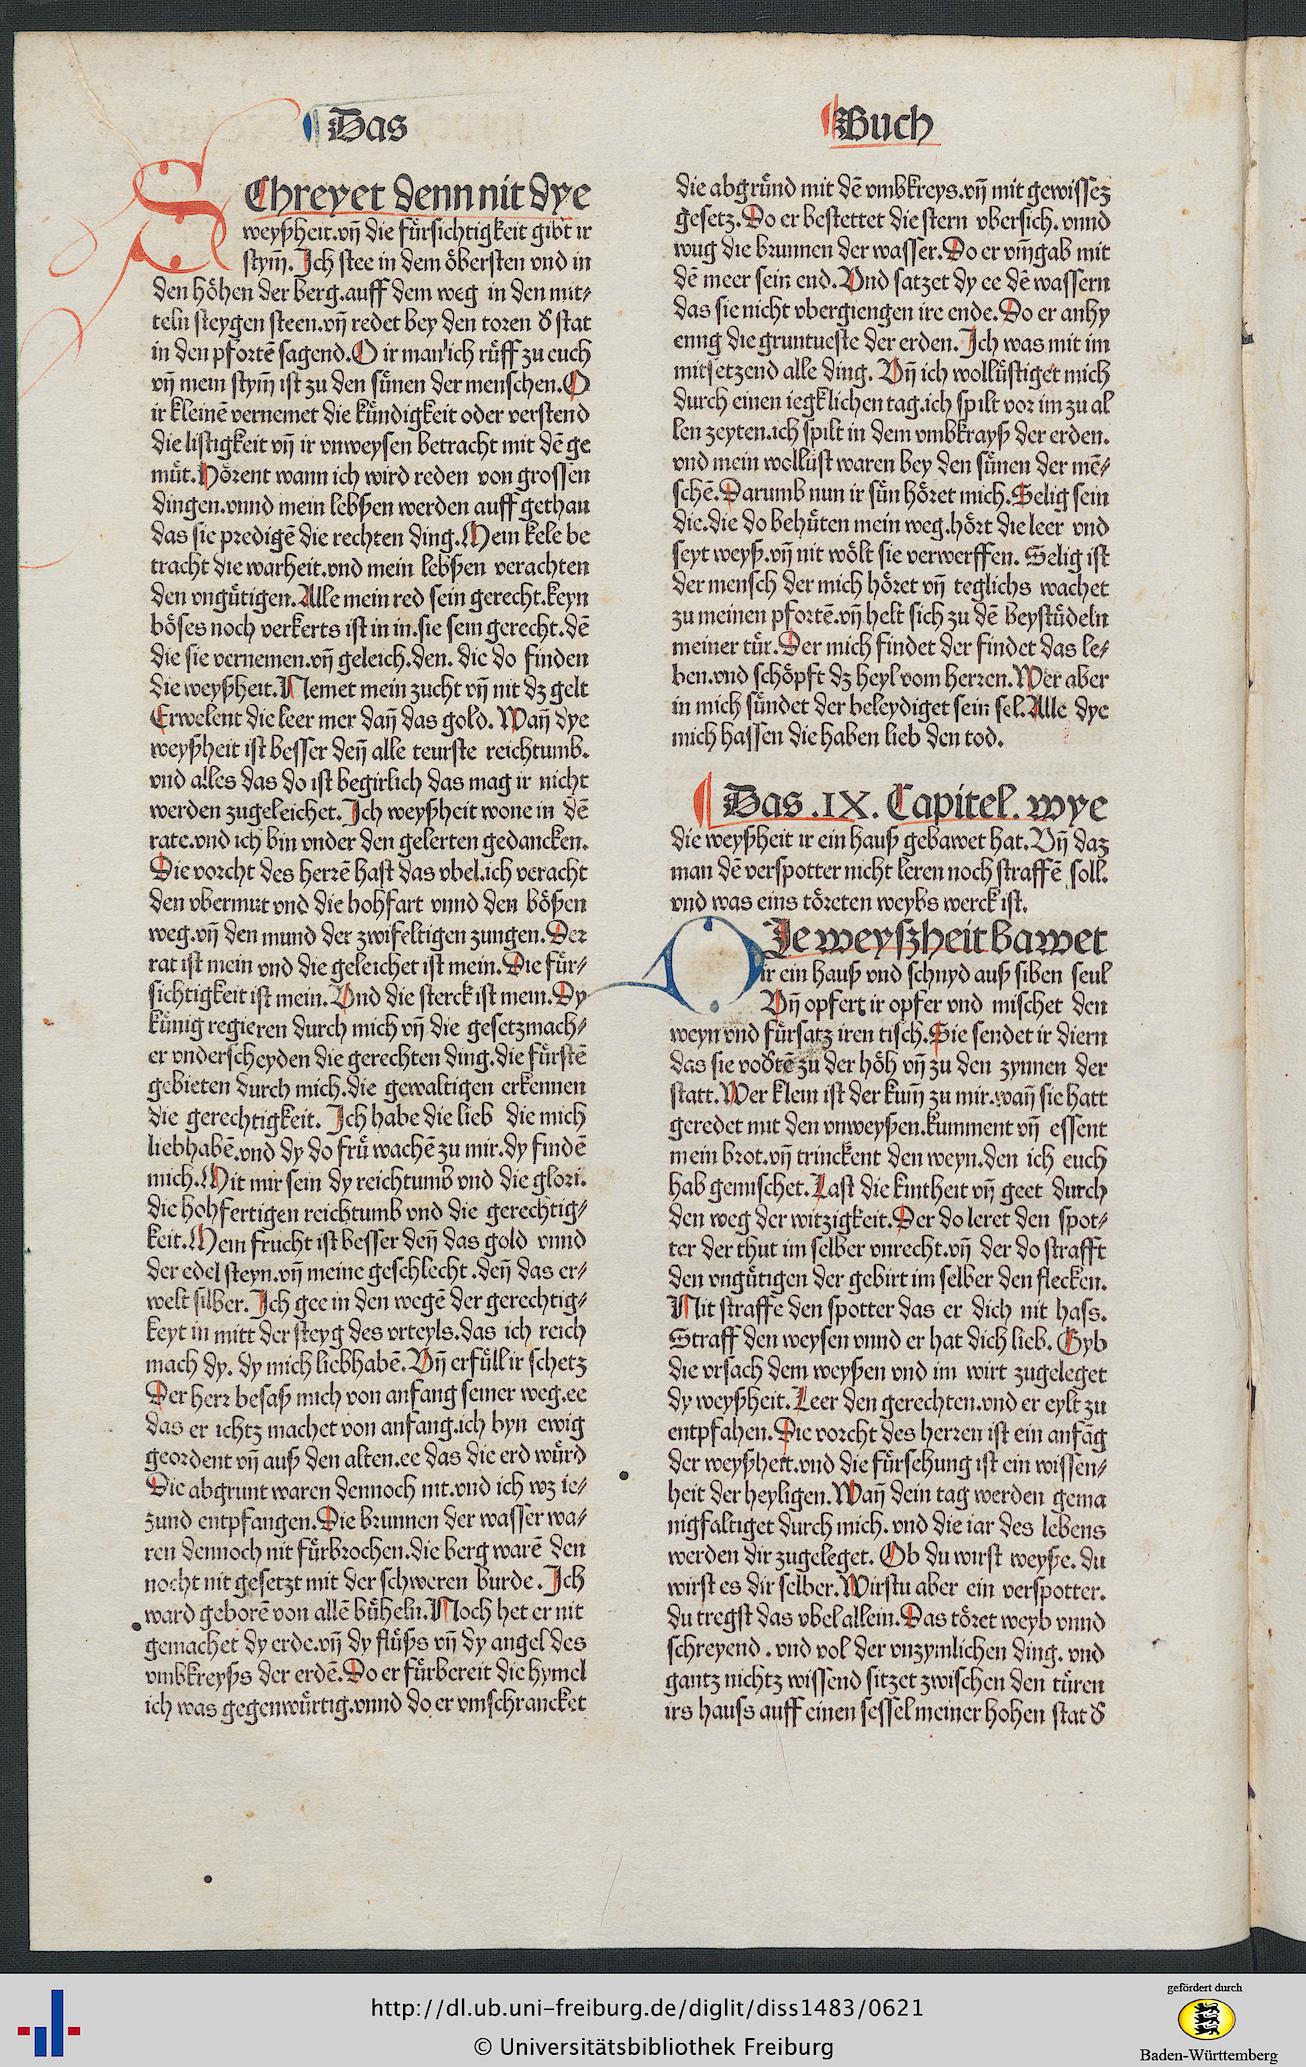 Das
Buch
SChreyet denn nit dye
weyßheit.vn̄ die fürsichtigkeit gibt ir
stym̄. Ich stee in dem öbersten vnd in
den höhen der berg.auff dem weg in den mit⸗
teln steygen steen.vn̄ redet bey den toren d͛ stat
in den pfortē sagend.O ir man'ich rüff zu euch
vn̄ mein stym̄ ist zu den sünen der menschen.O
ir kleinē vernemet die kündigkeit oder verstend
die listigkeit vn̄ ir vnweysen betracht mit dē ge
müt.Hörent wann ich wird reden von grossen
dingen.vnnd mein lebßen werden auff gethan
das sie predigē die rechten ding.Mein kele be
tracht die warheit.vnd mein lebßen verachten
den vngütigen.Alle mein red sein gerecht.keyn
böses noch verkerts ist in in.sie sein gerecht.dē
die sie vernemen.vn̄ geleich.den. die do finden
die weyßheit.Nemet mein zucht vn̄ nit dz gelt
Erwelent die leer mer dan̄ das gold. Wan̄ dye
weyßheit ist besser den̄ alle teurste reichtumb.
vnd alles das do ist begirlich das mag ir nicht
werden zugeleichet.Ich weyßheit wone in dē
rate.vnd ich bin vnder den gelerten gedancken.
Die vorcht des herrē hast das vbel.ich veracht
den vbermut vnd die hohfart vnnd den bößen
weg.vn̄ den mund der zwifeltigen zungen.Der
rat ist mein vnd die geleichet ist mein.Die für⸗
sichtigkeit ist mein. Vnd die sterck ist mein.Dy
künig regieren durch mich vn̄ die gesetzmach⸗
er vnderscheyden die gerechten ding.die fürstē
gebieten durch mich.die gewaltigen erkennen
die gerechtigkeit. Ich habe die lieb die mich
liebhabē.vnd dy do frü wachē zu mir.dy findē
mich.Mit mir sein dy reichtumb vnd die glori.
die hohfertigen reichtumb vnd die gerechtig⸗
keit.Mein frucht ist besser den̄ das gold vnnd
der edel steyn.vn̄ meine geschlecht.den̄ das er⸗
welt silber. Ich gee in den wegē der gerechtig⸗
keyt in mitt der steyg des vrteyls.das ich reich
mach dy. dy mich liebhabē. Vn̄ erfüll ir schetz
Der herr besaß mich von anfang seiner weg.ee
das er ichtz machet von anfang.ich byn ewig
geordent vn̄ auß den alten.ee das die erd würd
Die abgrunt waren dennoch nit.vnd ich wz ie⸗
zund entpfangen.Die brunnen der wasser wa⸗
ren dennoch nit fürbrochen.die berg warē den
nocht nit gesetzt mit der schweren burde. Ich
ward geborē von allē büheln.Noch het er nit
gemachet dy erde.vn̄ dy flüßs vn̄ dy angel des
vmbkreyßs der erdē.Do er fürbereit die hymel
ich was gegenwürtig.vnnd do er vmschrancket
die abgründ mit dē vmbkreys.vn̄ mit gewissez
gesetz.Do er bestettet die stern vbersich. vnnd
wug die brunnen der wasser.Do er vm̄gab mit
dē meer sein end. Vnd satzet dy ee dē wassern
das sie nicht vbergiengen ire ende.Do er anhy
enng die gruntueste der erden. Ich was mit im
mitsetzend alle ding. Vn̄ ich wollüstiget mich
durch einen iegklichen tag.ich spilt vor im zu al
len zeyten.ich spilt in dem vmbkrayß der erden.
vnd mein wollüst waren bey den sünen der mē⸗
schē.Darumb nun ir sün höret mich.Selig sein
die.die do behüten mein weg.hört die leer vnd
seyt weyß.vn̄ nit wölt sie verwerffen. Selig ist
der mensch der mich höret vn̄ teglichs wachet
zu meinen pfortē.vn̄ helt sich zu dē beystüdeln
meiner tür.Der mich findet der findet das le⸗
ben.vnd schöpft dz heyl vom herren.Wer aber
in mich sündet der beleydiget sein sel.Alle dye
mich hassen die haben lieb den tod.
Das .IX. Capitel. wye
die weyßheit ir ein hauß gebawet hat. Vn̄ daz
man dē verspotter nicht leren noch straffē soll.
vnd was eins töreten weybs werck ist.
DIe weyszheit bawet
ir ein hauß vnd schnyd auß siben seul
Vn̄ opfert ir opfer vnd mischet den
weyn vnd fürsatz iren tisch.Sie sendet ir diern
das sie vod͛tē zu der höh vn̄ zu den zynnen der
statt.Wer klein ist der kum̄ zu mir.wan̄ sie hatt
geredet mit den vnweyßen.kumment vn̄ essent
mein brot.vn̄ trinckent den weyn.den ich euch
hab gemischet. Last die kintheit vn̄ geet durch
den weg der witzigkeit.Der do leret den spot⸗
ter der thut im selber vnrecht.vn̄ der do strafft
den vngütigen der gebirt im selber den flecken.
Nit straffe den spotter das er dich nit hass.
Straff den weysen vnnd er hat dich lieb. Gyb
die vrsach dem weyßen vnd im wirt zugeleget
dy weyßheit. Leer den gerechten.vnd er eylt zu
entpfahen. Die vorcht des herren ist ein anfāg
der weyßheit.vnd die fürsehung ist ein wissen⸗
heit der heyligen. Wan̄ dein tag werden gema
nigfaltiget durch mich. vnd die iar des lebens
werden dir zugeleget. Ob du wirst weyße. du
wirst es dir selber.Wirstu aber ein verspotter.
du tregst das vbel allein.Das töret weyb vnnd
schreyend . vnd vol der vnzymlichen ding. vnd
gantz nichtz wissend sitzet zwischen den türen
irs hauss auff einen sessel meiner hohen stat d͛
http://dl.ub.uni-freiburg.de/diglit/diss1483/0621
© Universitätsbibliothek Freiburg
gefördert durch
Baden-Württemberg